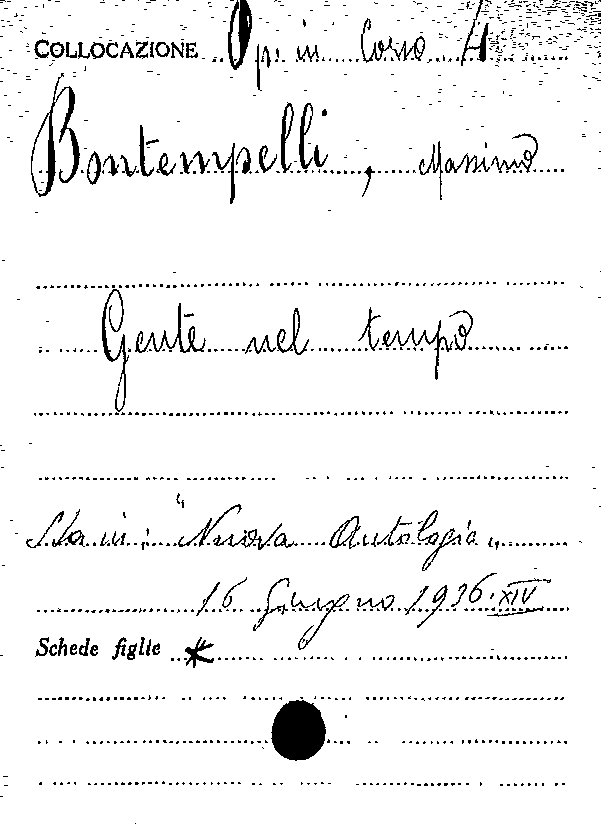 COLLOCAZIONE Op. in Corso 4
Bontempelli, Massimo
Gente nel tempo
Sta in: "Nuova Antologia„
16 Giugno 1936.XIV
Schede figlie *